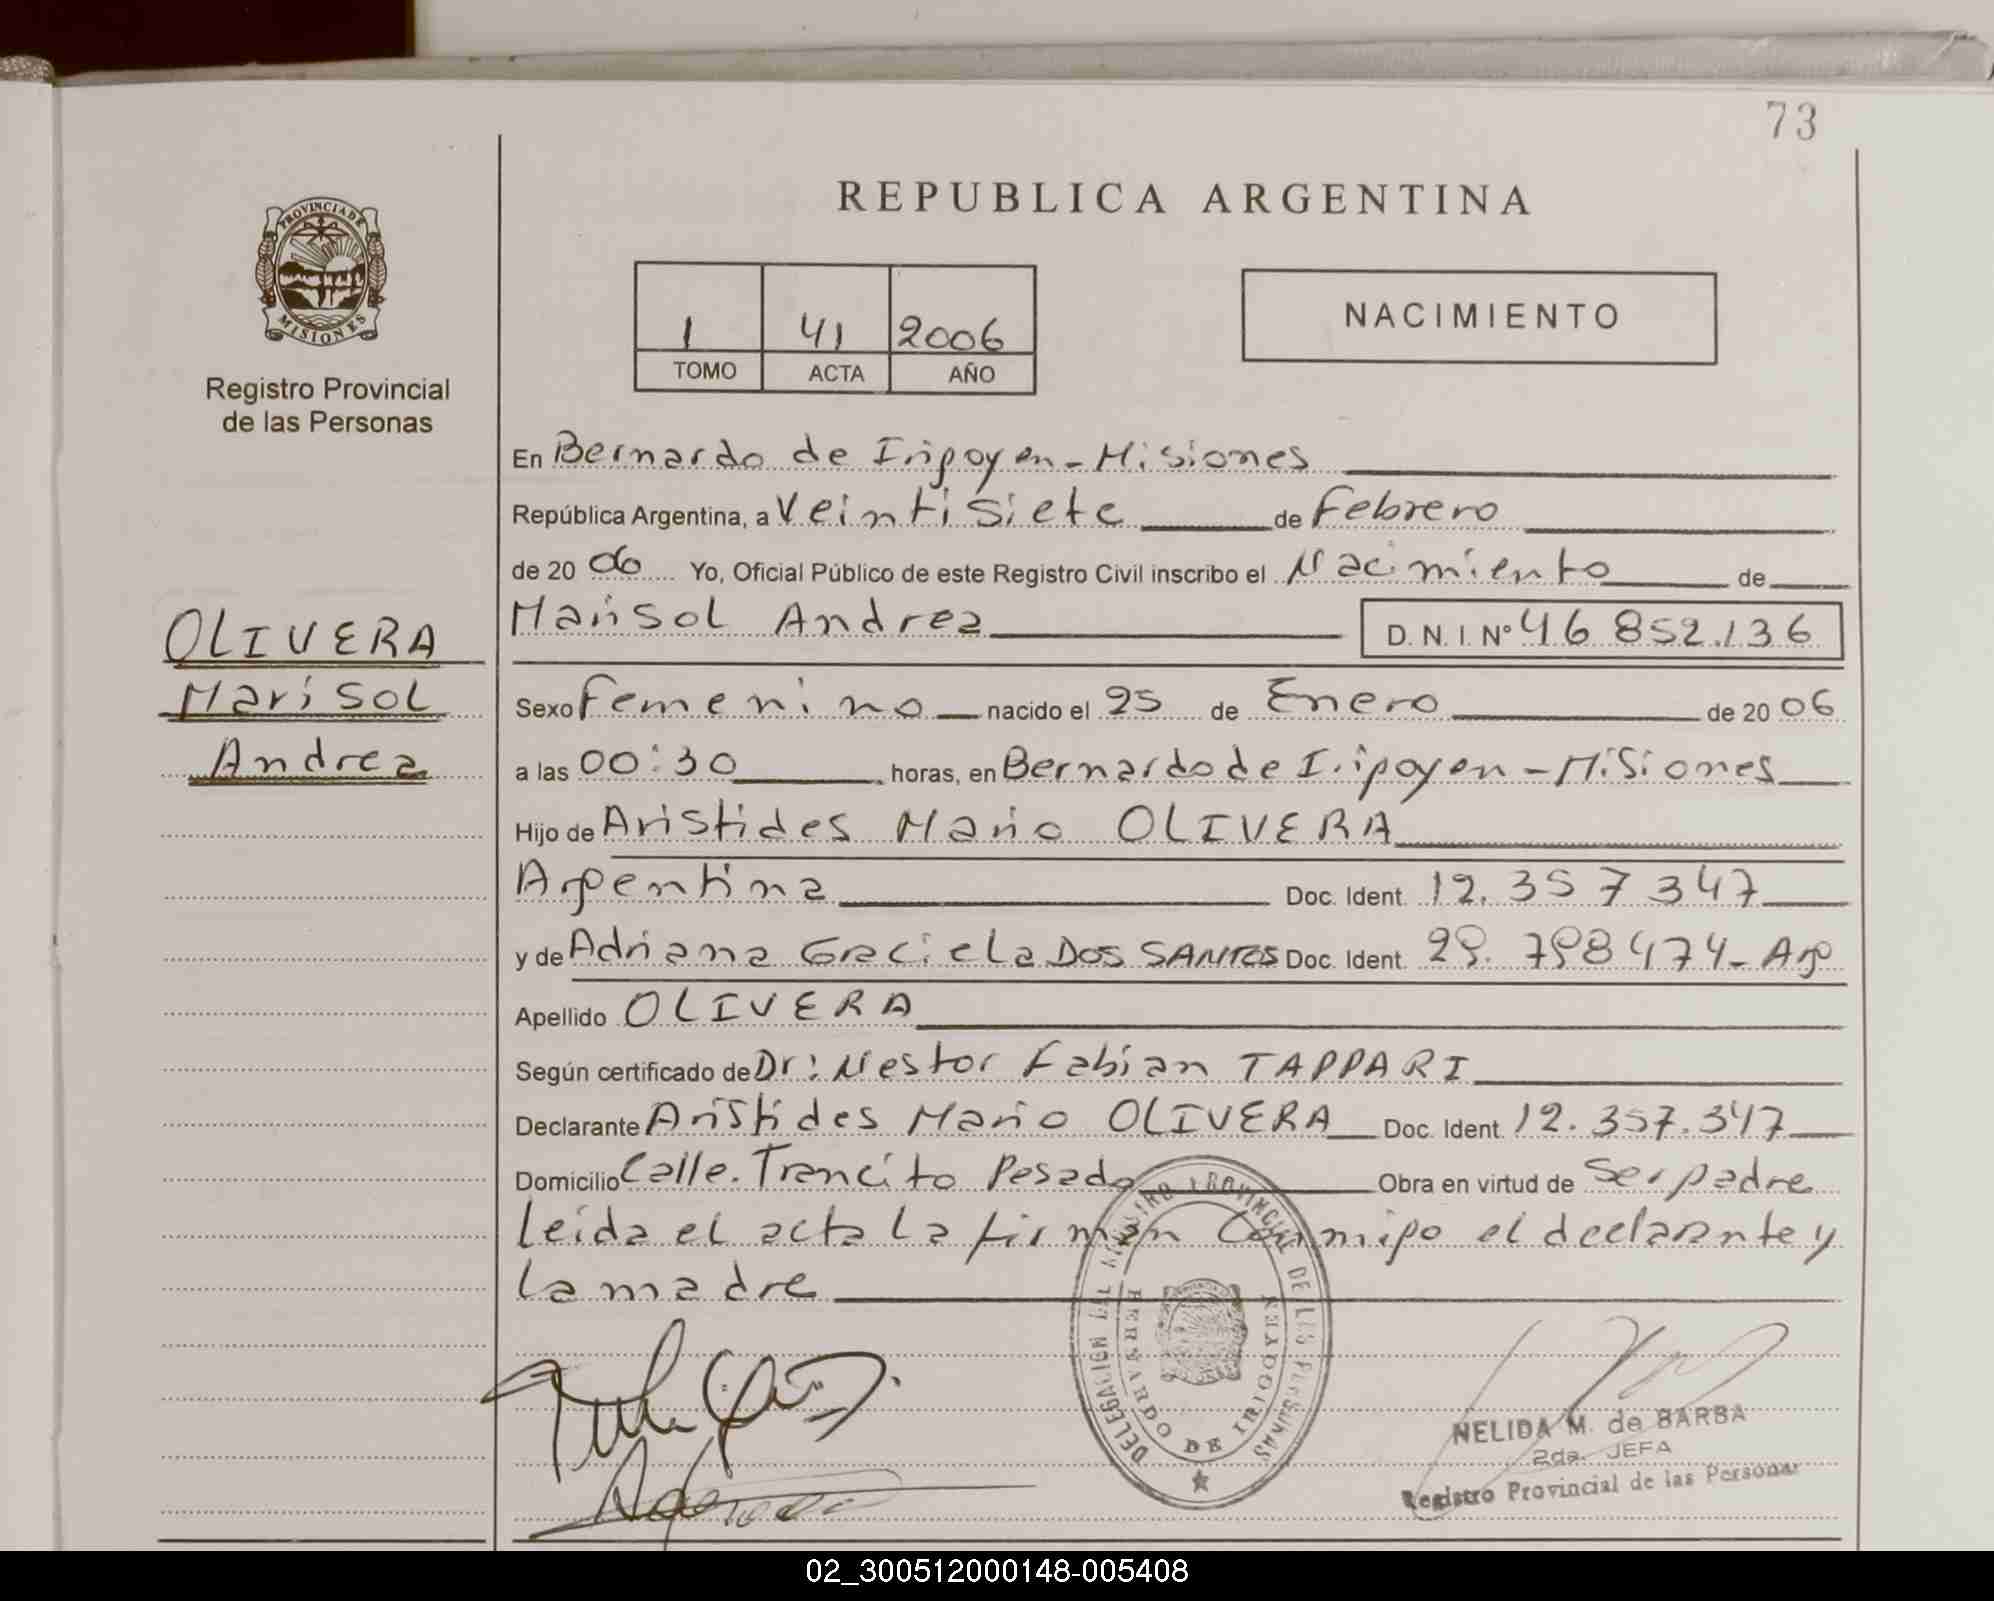 73
PROVINCIA DE
MISIONES
Registro Provincial
de las Personas
REPUBLICA ARGENTINA
1 41 2006
TOMO ACTA AÑO
NACIMIENTO
OLIVERA
Marisol
Andrea
En Bernardo de Irigoyen - Misiones
República Argentina, a Veintisiete de Febrero
de 20 06 Yo, Oficial Público de este Registro Civil inscribo el Nacimiento de
Marisol Andrea D. N. I. Nº 46 852.136
Sexo Femenino nacido el 25 de Enero de 20 06
a las 00:30 horas, en Bernardo de Irigoyen - Misiones
Hijo de Aristides Mario OLIVERA
Argentina Doc. Ident. 12.357 347
y de Adriana Graciela DOS SANTOS Doc. Ident. 474 - Arg
Apellido OLIVERA
Según certificado de Dr: Nestor Fabian TAPPARI
Declarante Aristides Mario OLIVERA Doc. Ident. 12.357.347
Domicilio Calle. Trancito Pesado Obra en virtud de Ser padre
Leida el acta La firman Conmigo el declarante y
La madre
DELEGACION DEL REGISTRO PROVINCIAL DE LAS PERSONAS
BERNARDO DE IRIGOYEN
NELIDA M. de BARBA
2da. JEFA
Registro Provincial de las Personas
02_300512000148-005408